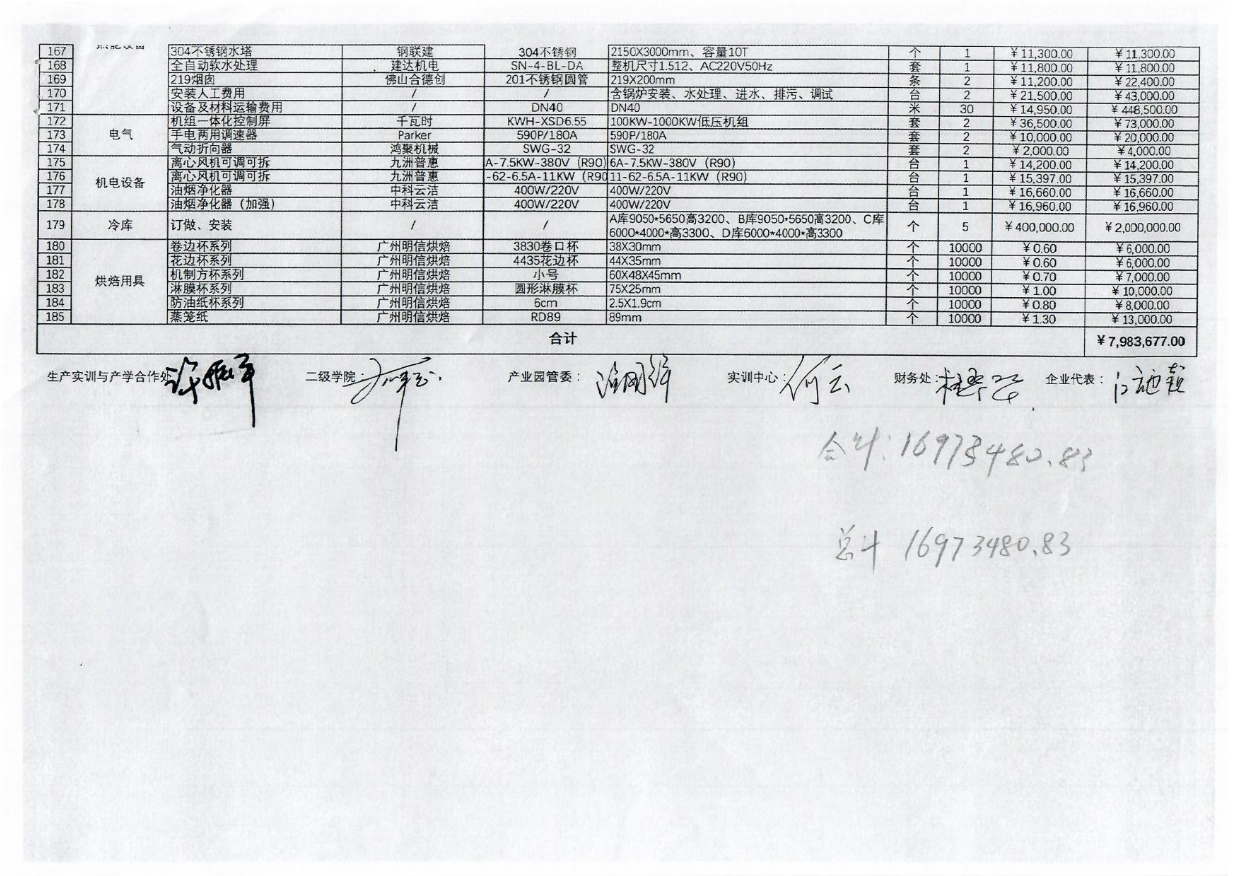 167 304不锈钢水塔 钢联建 304不锈钢 2150X3000mm、容量10T 个 1 ￥11,300.00 ￥11,300.00
168 全自动软水处理 建达机电 SN-4-BL-DA 整机尺寸1.512、AC220V50Hz 套 1 ￥11,800.00 ￥11,800.00
169 219烟囱 佛山合德创 201不锈钢圆管 219X200mm 条 2 ￥11,200.00 ￥22,400.00
170 安装人工费用 / / 含锅炉安装、水处理、进水、排污、调试 台 2 ￥21,500.00 ￥43,000.00
171 设备及材料运输费用 / DN40 DN40 米 30 ￥14,950.00 ￥448,500.00
172 机组一体化控制屏 千瓦时 KWH-XSD6.55 100KW-1000KW低压机组 套 2 ￥36,500.00 ￥73,000.00
173 电气 手电两用调速器 Parker 590P/180A 590P/180A 套 2 ￥10,000.00 ￥20,000.00
174 气动折向器 鸿聚机械 SWG-32 SWG-32 套 2 ￥2,000.00 ￥4,000.00
175 离心风机可调可拆 九洲普惠 A-7.5KW-380V（R90） 6A-7.5KW-380V（R90） 台 1 ￥14,200.00 ￥14,200.00
176 机电设备 离心风机可调可拆 九洲普惠 -62-6.5A-11KW（R90 11-62-6.5A-11KW（R90） 台 1 ￥15,397.00 ￥15,397.00
177 油烟净化器 中科云洁 400W/220V 400W/220V 台 1 ￥16,660.00 ￥16,660.00
178 油烟净化器（加强） 中科云洁 400W/220V 400W/220V 台 1 ￥16,960.00 ￥16,960.00
179 冷库 订做、安装 / / A库9050*5650高3200、B库9050*5650高3200、C库 个 5 ￥400,000.00 ￥2,000,000.00
6000*4000*高3300、D库6000*4000*高3300
180 卷边杯系列 广州明信烘焙 3830卷口杯 38X30mm 个 10000 ￥0.60 ￥6,000.00
181 花边杯系列 广州明信烘焙 4435花边杯 44X35mm 个 10000 ￥0.60 ￥6,000.00
182 烘焙用具 机制方杯系列 广州明信烘焙 小号 60X48X45mm 个 10000 ￥0.70 ￥7,000.00
183 淋膜杯系列 广州明信烘焙 圆形淋膜杯 75X25mm 个 10000 ￥1.00 ￥10,000.00
184 防油纸杯系列 广州明信烘焙 6cm 2.5X1.9cm 个 10000 ￥0.80 ￥8,000.00
185 蒸笼纸 广州明信烘焙 RD89 89mm 个 10000 ￥1.30 ￥13,000.00
合计 ￥7,983,677.00
生产实训与产学合作处: 二级学院: 产业园管委: 实训中心: 何云 财务处: 企业代表:
合计:16973480.83
总计 16973480.83